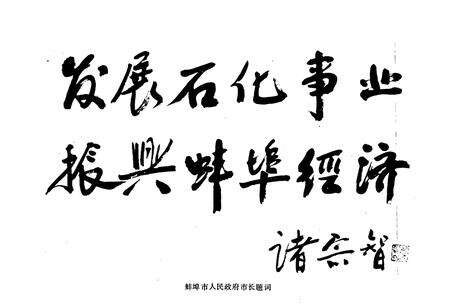 发展石化事业
振興蚌埠經济
诸宗智
蚌埠市人民政府市长题词